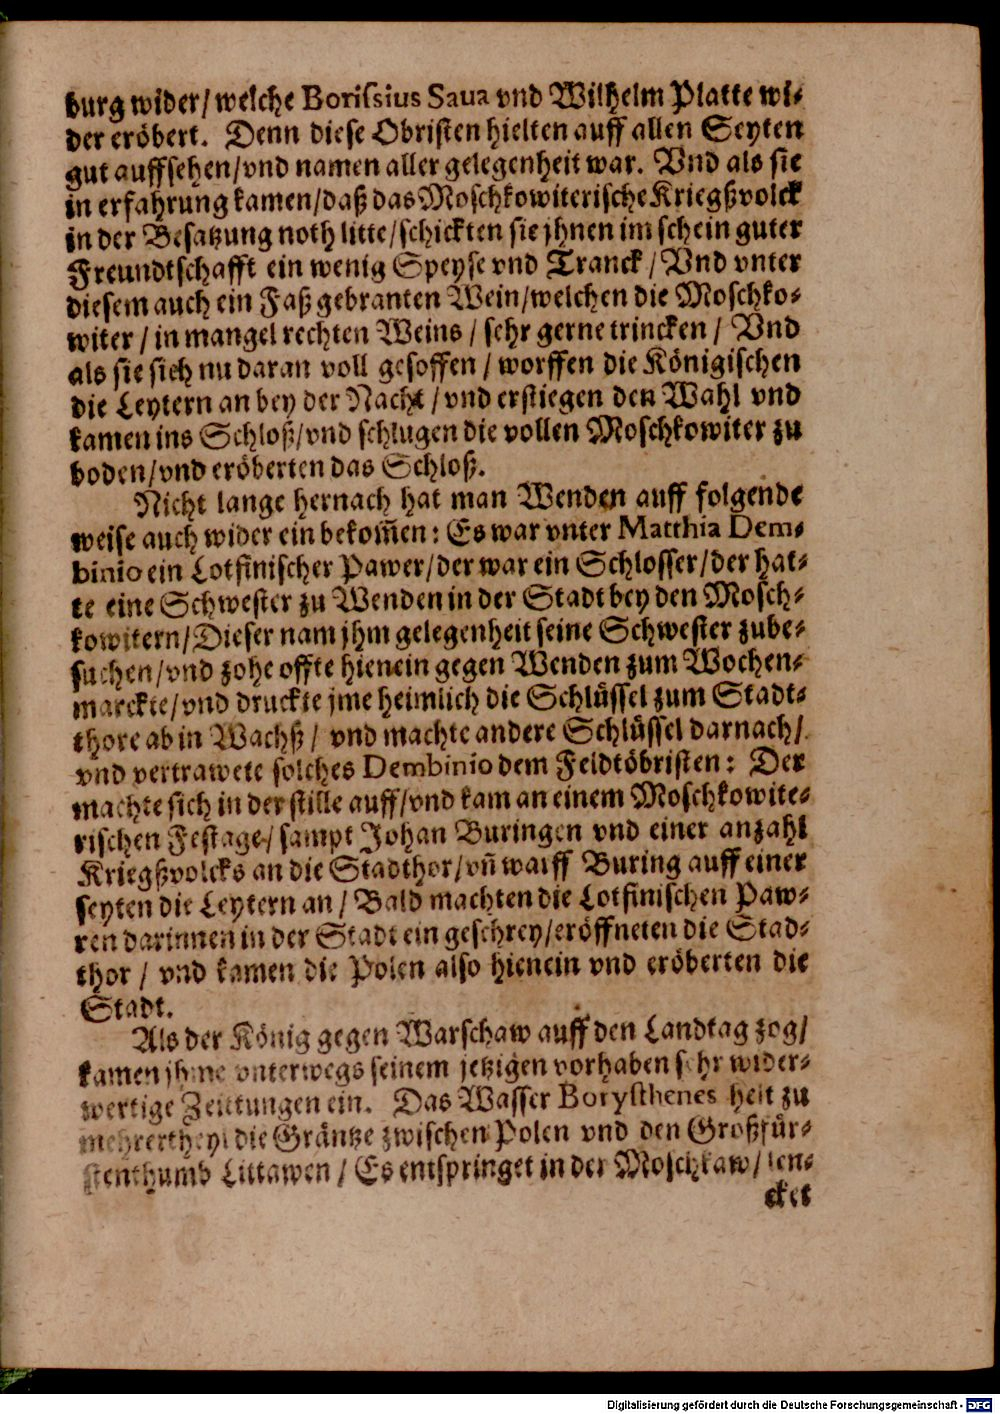 burg wider/ welche Borissius Saua vnd Wilhelm Platte wi-
der eröbert. Denn diese Obristen hielten auff allen Seyten
gut auffsehen/vnd namen aller gelegenheit war. Vnd als sie
in erfahrung kamen/daß das Moschkowiterische Kriegßvolck
in der Besatzung noth litte/schickten sie jhnen im schein guter
Freundtschafft ein wenig Speyse vnd Tranck / Vnd vnter
diesem auch ein Faß gebranten Wein/welchen die Moschko-
witer / in mangel rechten Weins / sehr gerne trincken / Vnd
als sie sich nu daran voll gesoffen / worffen die Königischen
die Leytern an bey der Nacht / vnd erstiegen den Wahl vnd
kamen ins Schloß/vnd schlugen die vollen Moschkowiter zu
boden/vnd eröberten das Schloß.
Nicht lange hernach hat man Wenden auff folgende
weise auch wider ein bekom̃en: Es war vnter Matthia Dem-
binio ein Lotfinischer Pawer/der war ein Schlosser/der hat-
te eine Schwester zu Wenden in der Stadt bey den Mosch-
kowitern/Dieser nam jhm gelegenheit seine Schwester zube-
suchen/vnd zohe offte hienein gegen Wenden zum Wochen-
marckte/vnd druckte jme heimlich die Schlüssel zum Stadt-
thore ab in Wachß / vnd machte andere Schlüssel darnach/
vnd vertrawete solches Dembinio dem Feldtöbristen: Der
machte sich in der stille auff/vnd kam an einem Moschkowite-
rischen Festage/ sampt Johan Buringen vnd einer anzahl
Kriegßvolcks an die Stadthor/vn̄ warff Buring auff einer
seyten die Leytern an / Bald machten die Lotfinischen Paw-
ren darinnen in der Stadt ein geschrey/eröffneten die Stad-
thor / vnd kamen die Polen also hienein vnd eröberten die
Stadt.
Als der König gegen Warschaw auff den Landtag zog/
kamen jhme vnterwegs seinem jetzigen vorhaben sehr wider-
wertige Zeittungen ein. Das Wasser Borysthenes helt zu
mehrertheyl die Gräntze zwischen Polen vnd den Großfür-
stenthumb Littawen / Es entspringet in der Moschkaw/ len-
cket
Digitalisierung gefördert durch die Deutsche Forschungsgemeinschaft - DFG